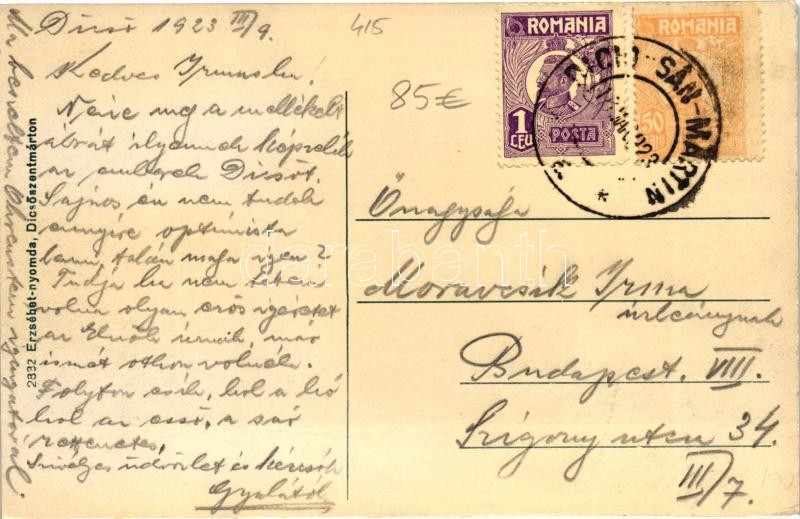 Dicső 1923 III/9.
415
Kedves Irmuska!
85€
Nézze meg a mellékelt
ábrát ilyennek képzelik
az emberek Dicsőt.
Sajnos én nem tudok
ennyire optimista
lenni, talán maga igen?
Tudja ha nem tettem
volna olyan erős igéretet
az Elnök úrnak, már
ismét othon volnék.
Folyton esik, hol a hó
hol az eső, a sár
rettenetes.
Szívélyes üdvözlet és kézcsók
Gyulától
2832 Erzsébet-nyomda, Dicsőszentmárton
ROMANIA
1
LEU
POSTA
ROMANIA
50
BANI
DICIO-SÂN-MARTIN
Önagysága
Moravcsik Irma
úrleánynak
Budapest. VIII.
Szigony utca 34.
III/7.
darabanth